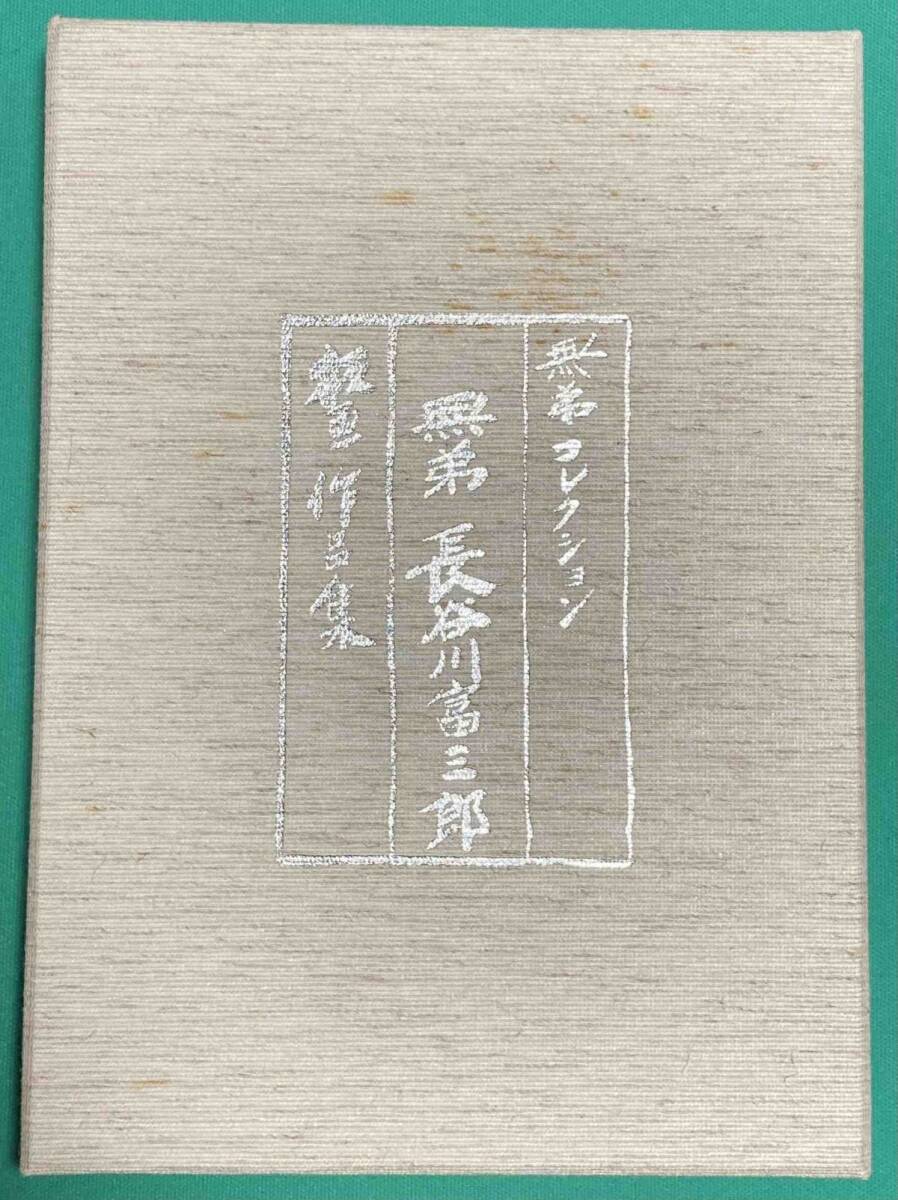 無弟コレクション
無弟 長谷川富三郎
板画作品集